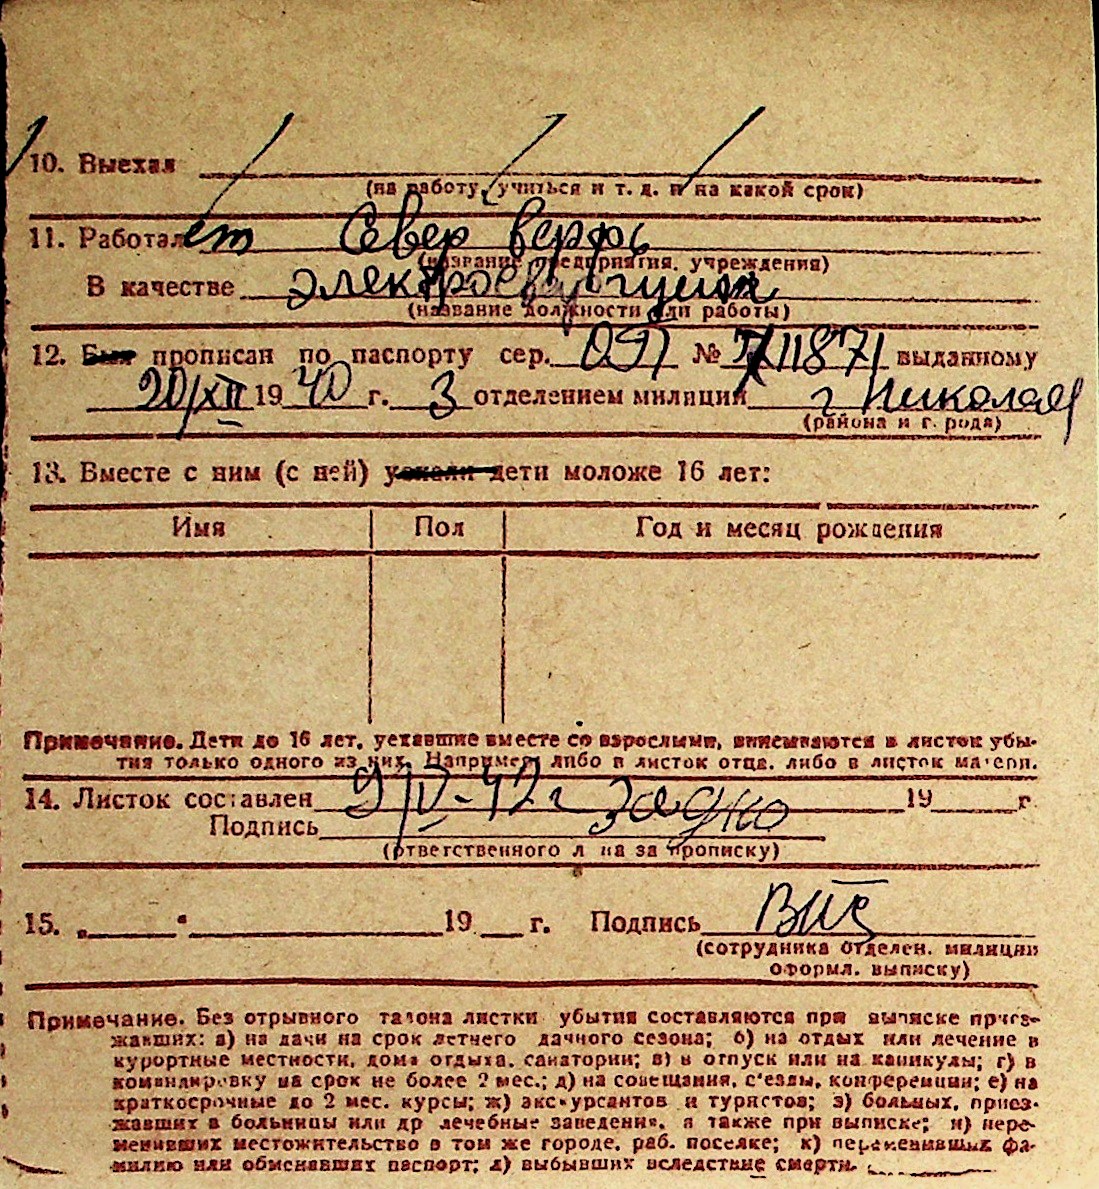 10. Выехал
(на работу, учиться и т. д. и на какой срок)
11. Работает Север верфь
(название предприятия, учреждения)
В качестве электросварщик
(название должности или работы)
12. Был прописан по паспорту сер. № 711871 выданному
20/XII 1940 г. 3 отделением милиции г Николаев
(района и города)
13. Вместе с ним (с ней) уехали дети моложе 16 лет:
Имя Пол Год и месяц рождения
Примечание. Дети до 16 лет, уехавшие вместе со взрослыми, вписываются в листок убы-
тия только одного из них. Например либо в листок отца, либо в листок матери.
14. Листок составлен 9/IV-42 г 19 г.
Подпись
(ответственного лица за прописку)
15. „ “ 19 г. Подпись
(сотрудника отделен. милиции
оформл. выписку)
Примечание. Без отрывного талона листки убытия составляются при выписке приез-
жавших: а) на дачи на срок летнего дачного сезона; б) на отдых или лечение в
курортные местности, дома отдыха, санатории; в) в отпуск или на каникулы; г) в
командировку на срок не более 2 мес.; д) на совещания, с'езды, конференции; е) на
краткосрочные до 2 мес. курсы; ж) экскурсантов и туристов; з) больных, приез-
жавших в больницы или др лечебные заведения, а также при выписке; и) пере-
менивших местожительство в том же городе, раб. поселке; к) переменивших фа-
милию или обменявших паспорт; л) выбывших вследствие смерти.